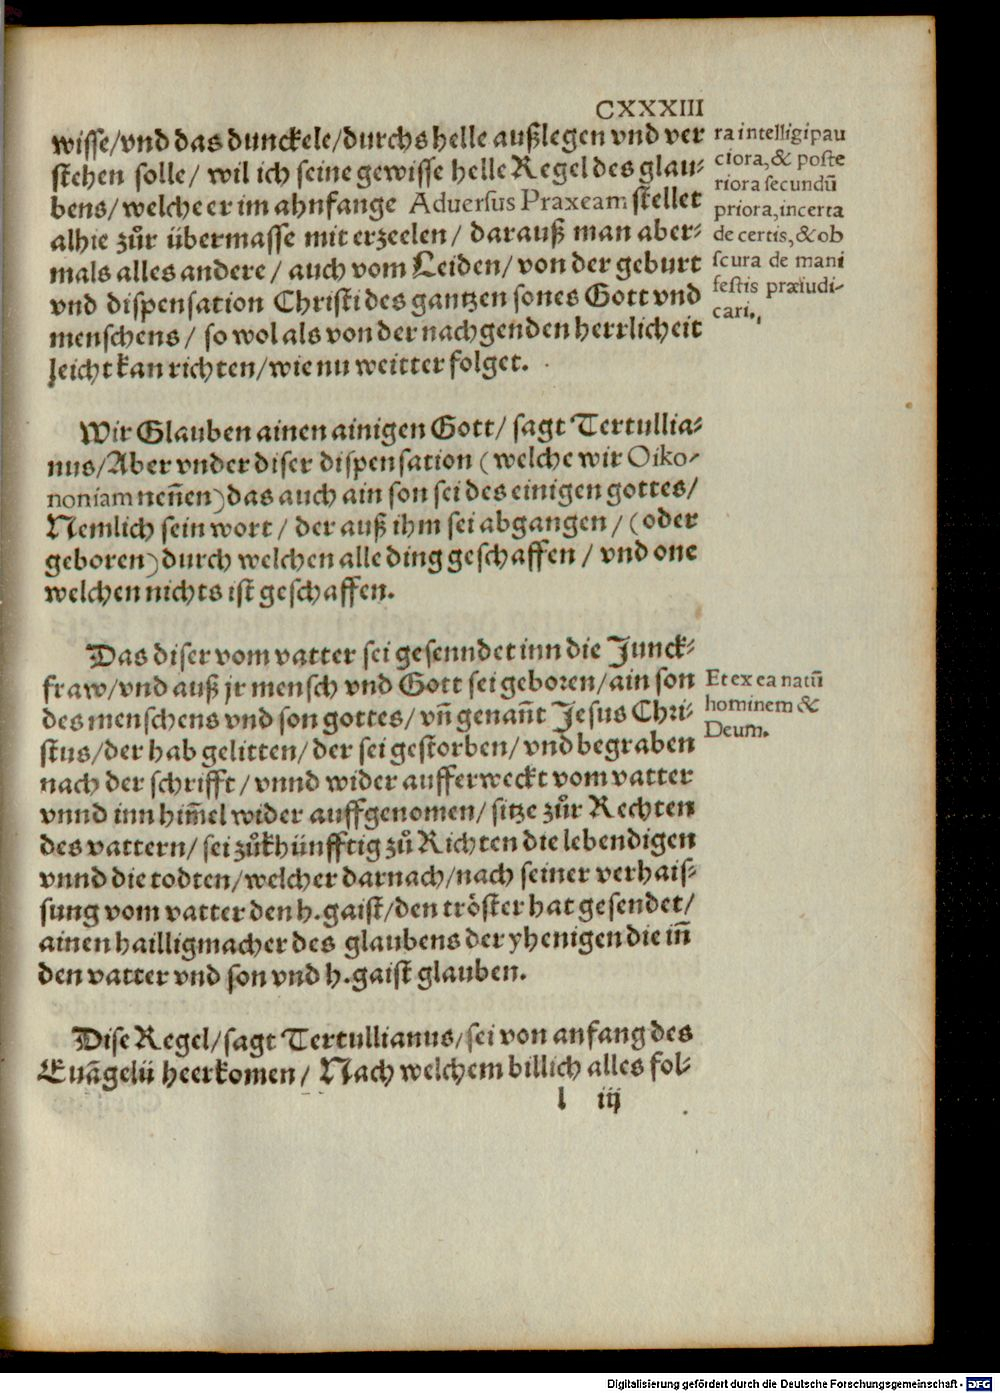 CXXXIII
wisse/vnd das dunckele/durchs helle außlegen vnd ver
stehen solle/ wil ich seine gewisse helle Regel des glau-
bens/welche er im ahnfange Aduersus Praxeam stellet
alhie zůr übermasse mit erzeelen/ darauß man aber-
mals alles andere/ auch vom Leiden/ von der geburt
vnd dispensation Christi des gantzen sones Gott vnd
menschens/ so wol als von der nachgenden herrlicheit
leicht kan richten/wie nu weitter folget.
ra intelligi pau
ciora, & poste
riora secundū
priora, incerta
de certis, & ob
scura de mani
festis præiudi-
cari.
Wir Glauben ainen ainigen Gott/ sagt Tertullia-
nus/Aber vnder diser dispensation (welche wir Oiko-
noniam neñen) das auch ain son sei des einigen gottes/
Nemlich sein wort/ der auß ihm sei abgangen/ (oder
geboren) durch welchen alle ding geschaffen/ vnd one
welchen nichts ist geschaffen.
Das diser vom vatter sei gesenndet inn die Junck-
fraw/vnd auß jr mensch vnd Gott sei geboren/ain son
des menschens vnd son gottes/ vñ genañt Jesus Chri-
stus/der hab gelitten/ der sei gestorben/ vnd begraben
nach der schrifft/ vnnd wider aufferweckt vom vatter
vnnd inn him̃el wider auffgenomen/ sitze zůr Rechten
des vattern/ sei zůkhünfftig zů Richten die lebendigen
vnnd die todten/welcher darnach/nach seiner verhais-
sung vom vatter den h. gaist/den tröster hat gesendet/
ainen hailligmacher des glaubens der yhenigen die iñ
den vatter vnd son vnd h. gaist glauben.
Et ex ea natū
hominem &
Deum.
Dise Regel/sagt Tertullianus/sei von anfang des
Euāgelii heerkomen/ Nach welchem billich alles fol-
l iij
Digitalisierung gefördert durch die Deutsche Forschungsgemeinschaft - DFG